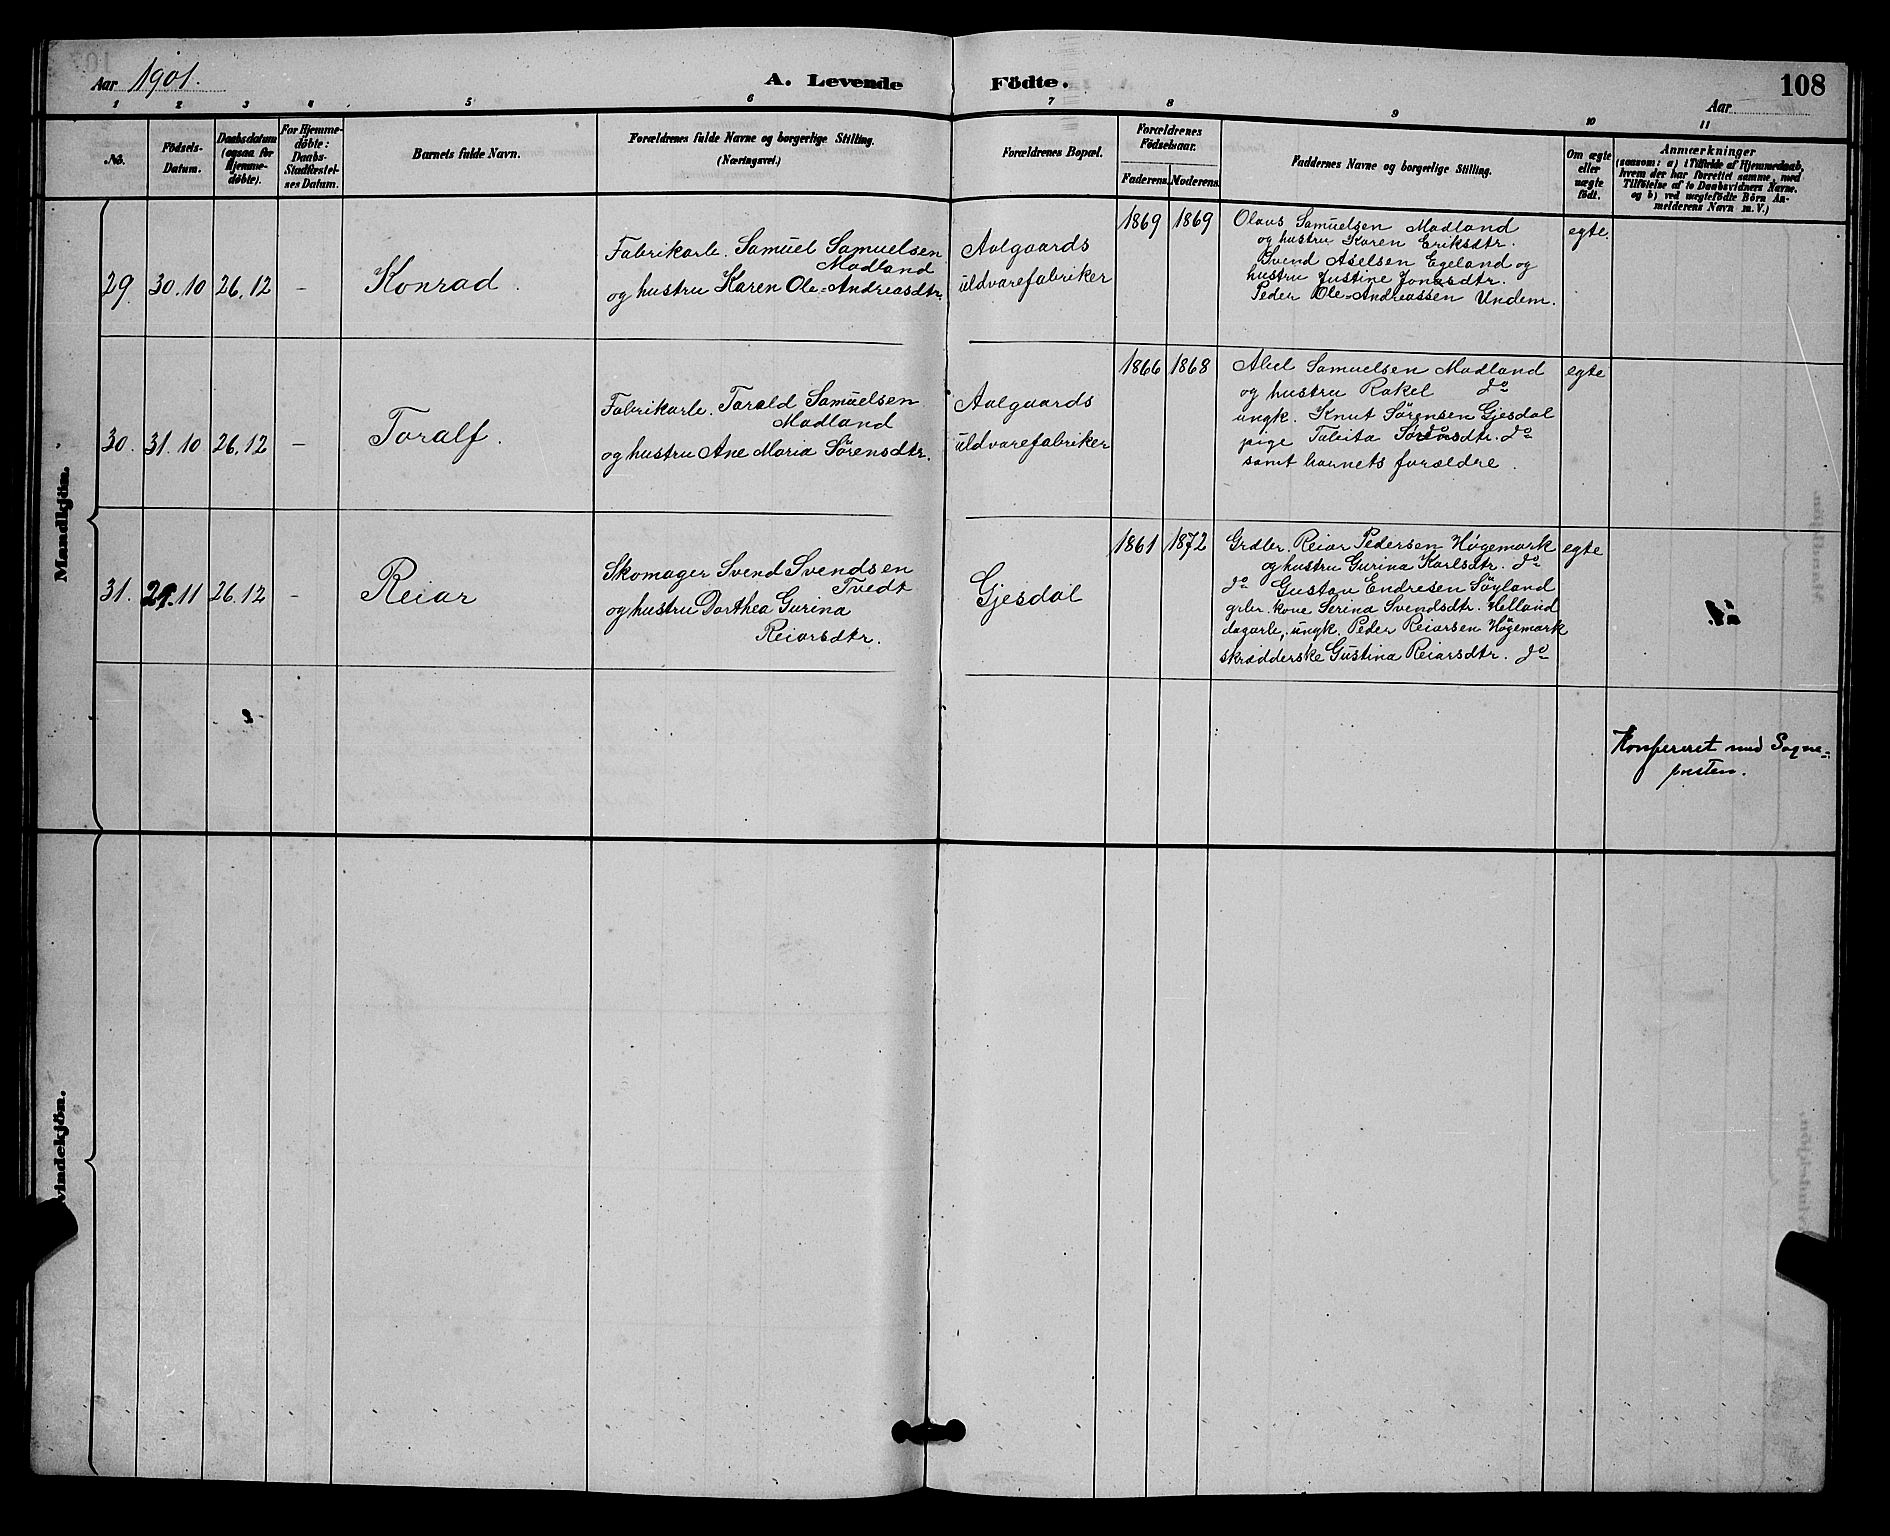 Aar 1901.
A. Levende Födte.
108
Aar
1 2 3 4 5 6 7 8 9 10 11
No.
Födsels-
Datum.
Daabsdatum
(ogsaa for
Hjemme-
döbte).
For Hjemme-
döbte:
Daabs-
Stadfæstel-
ses Datum.
Barnets fulde Navn.
Forældrenes fulde Navne og borgerlige Stilling.
(Næringsvei.)
Forældrenes Bopæl.
Forældrenes
Födselsaar.
Faderens. Moderens.
Faddernes Navne og borgerlige Stilling.
Om ægte
eller
uægte
født.
Anmærkninger
(saasom: a) i Tilfælde af Hjemmedaab,
hvem der har forrettet samme, med
Tilföielse af to Daabsvidners Navne.
og b) ved uægtefödte Börn An-
melderens Navn m. V.)
Mandkjön.
29. 30.10 26.12 - Konrad.
Fabrikarb. Samuel Samuelsen
Madland
og hustru Karen Ole-Andreasdtr.
Aalgaards
uldvarefabriker
1869 1869
Olaus Samuelsen Madland
og hustru Karen Eriksdtr.
Svend Aselsen Egeland og
hustru Justine Jonasdtr.
Peder Ole-Andreassen Undem.
egte.
30. 31.10 26.12 - Toralf.
Fabrikarb. Torald Samuelsen
Madland
og hustru Ane Maria Sörensdtr.
Aalgaards
uldvarefabriker
1866 1868
Abel Samuelsen Madland
og hustru Rakel do
ungk. Knut Sørensen Gjesdal
pige Talita Sørensdtr. do
samt barnets forældre.
egte
31. 29.11 26.12 - Reiar
Skomager Svend Svendsen
Tvedt
og hustru Dorthea Gurina
Reiarsdtr.
Gjesdal
1861 1872
Grdbr. Reiar Pedersen Høgemark
og hustru Gurina Karlsdtr. do
do Gustav Endresen Söyland
grbr. kone Serina Svendsdtr. Helland
dagarb., ungk. Peder Reiarsen Høgemark
skrædderske Gustina Reiarsdtr. do
egte
Konfereret med Sogne-
presten.
vindekjön.